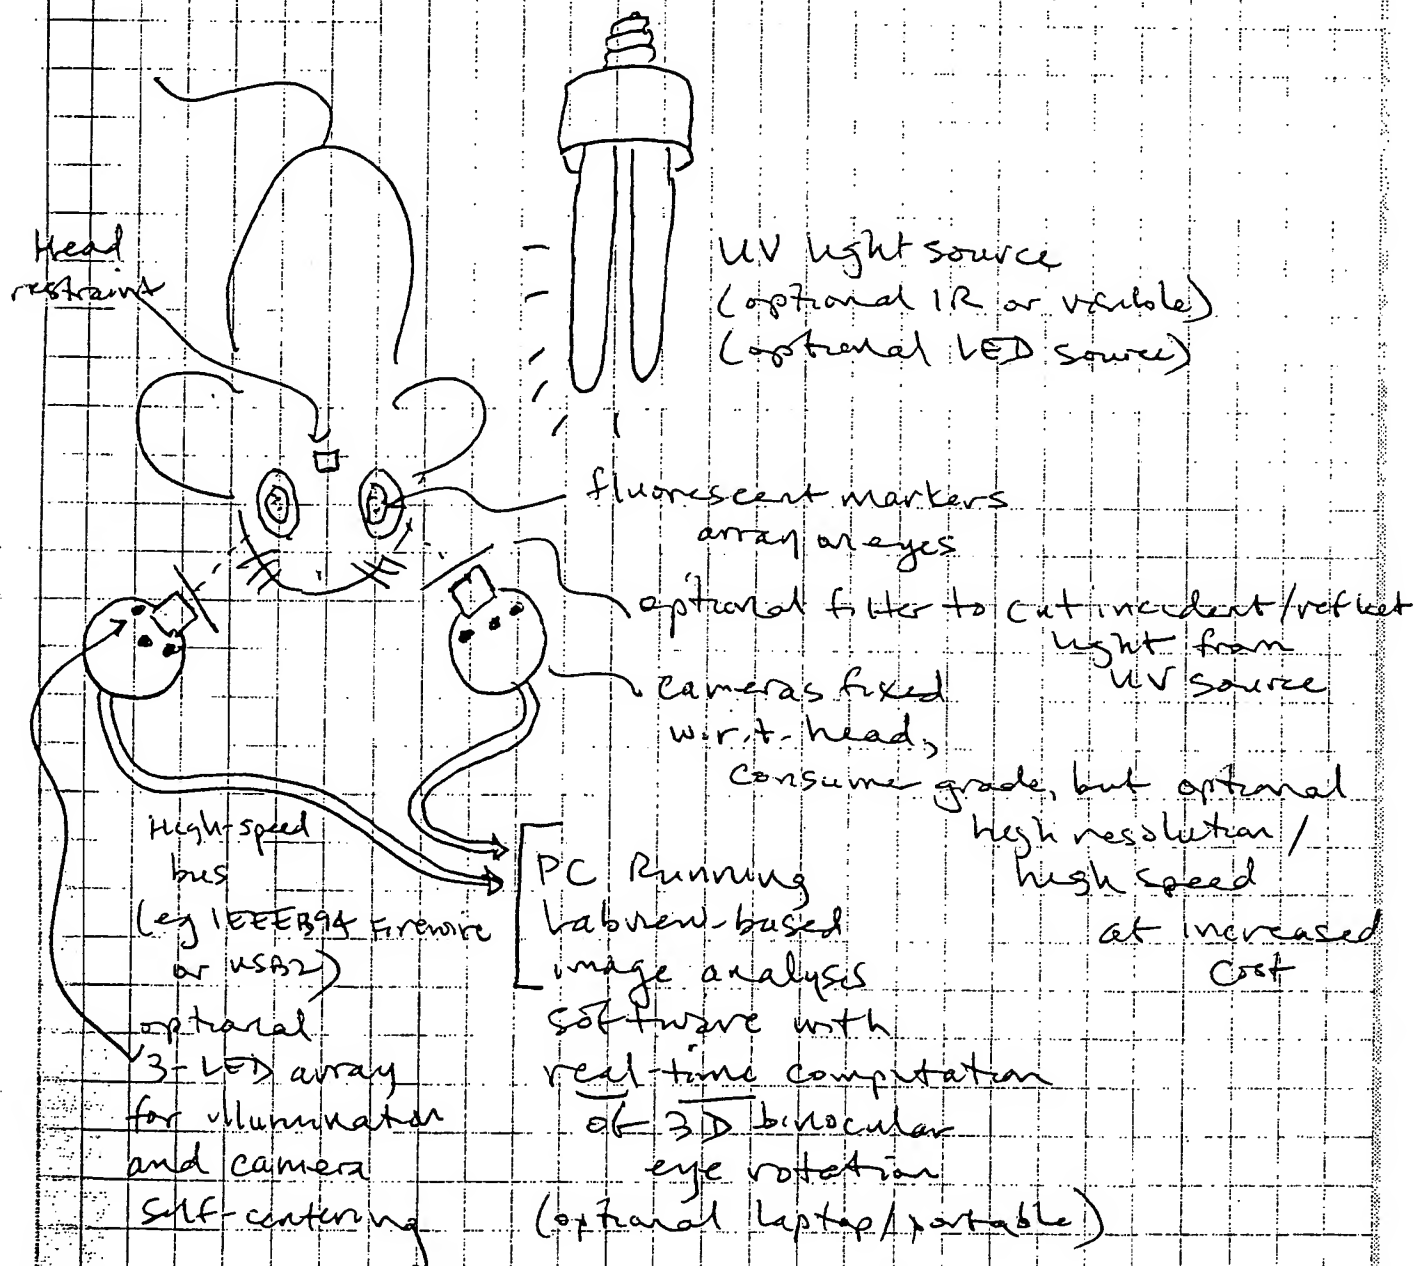 Head
restraint
UV light source
(optional IR or visible)
(optional LED source)
fluorescent markers
array on eyes
optional filter to cut incident/reflect
light from
UV source
cameras fixed
w.r.t. head,
consume grade, but optional
high resolution/
high speed
at increased
cost
High-speed
bus
(eg IEEE1394 Firewire
or USB2)
optional
3-LED array
for illumination
and camera
self-centering
PC Running
Labview-based
image analysis
software with
real-time computation
of 3D binocular
eye rotation
(optional laptop/portable)